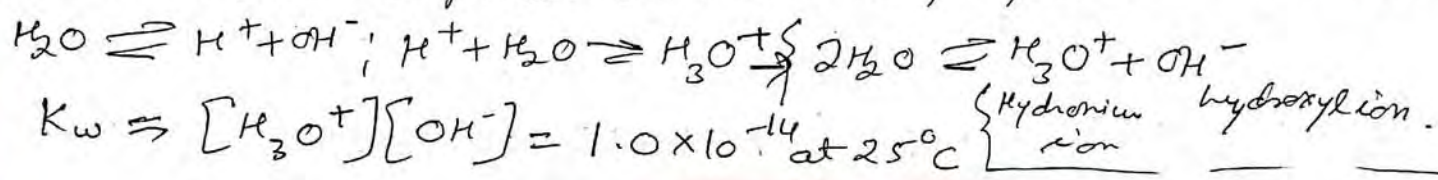 H₂O ⇌ H⁺ + OH⁻ ; H⁺ + H₂O ⇌ H₃O⁺ } 2H₂O ⇌ H₃O⁺ + OH⁻
Kw = [H₃O⁺][OH⁻] = 1.0 × 10⁻¹⁴ at 25°C { Hydronium ion hydroxyl ion.